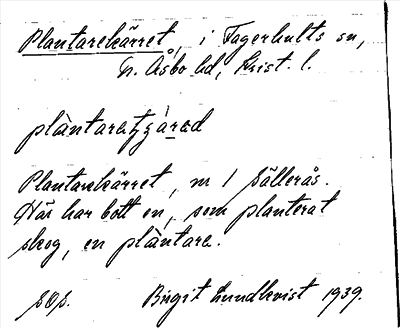 Plantarekärret, i Fagerhults sn,
N. Åsbo hd, Krist. l.
Plantarekärret, m 1 Sällerås.
Här har bott en, som planterat
skog, en plàntare.
Birgit Lundkvist 1939.